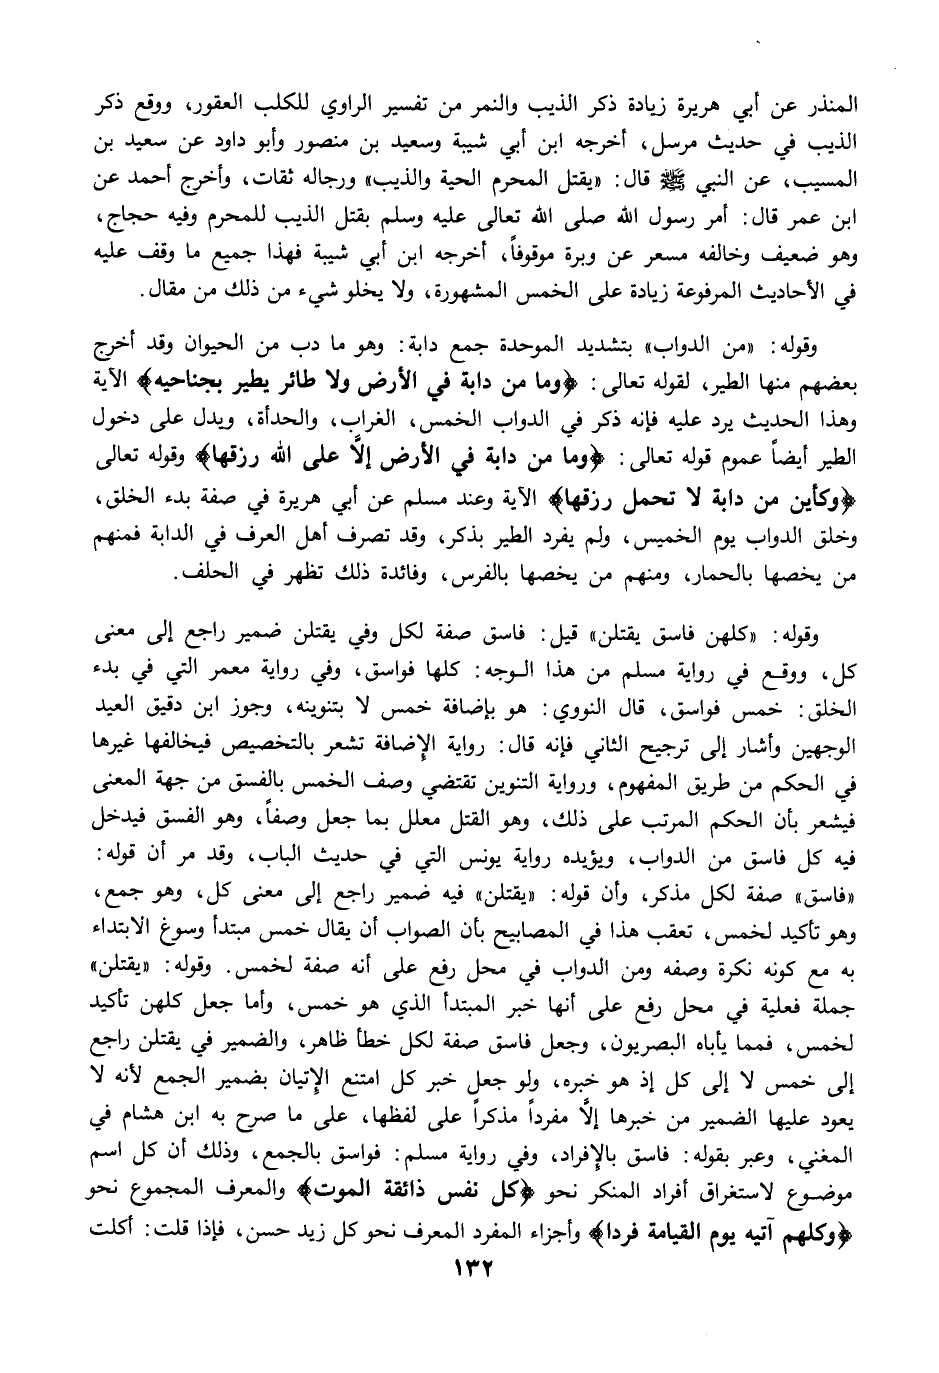 المنذر عن أبي هريرة زيادة ذكر الذيب والنمر من تفسير الراوي للكلب العقور، ووقع ذكر
الذيب في حديث مرسل، أخرجه ابن أبي شيبة وسعيد بن منصور وأبو داود عن سعيد بن
المسيب، عن النبي ﷺ قال: «يقتل المحرم الحية والذيب» ورجاله ثقات، وأخرج أحمد عن
ابن عمر قال: أمر رسول الله صلى الله تعالى عليه وسلم بقتل الذيب للمحرم وفيه حجاج،
وهو ضعيف وخالفه مسعر عن وبرة موقوفاً، أخرجه ابن أبي شيبة فهذا جميع ما وقف عليه
في الأحاديث المرفوعة زيادة على الخمس المشهورة، ولا يخلو شيء من ذلك من مقال.
وقوله: «من الدواب» بتشديد الموحدة جمع دابة: وهو ما دب من الحيوان وقد أخرج
بعضهم منها الطير، لقوله تعالى: ﴿وما من دابة في الأرض ولا طائر يطير بجناحيه﴾ الآية
وهذا الحديث يرد عليه فإنه ذكر في الدواب الخمس، الغراب، والحدأة، ويدل على دخول
الطير أيضاً عموم قوله تعالى: ﴿وما من دابة في الأرض إلَّا على الله رزقها﴾ وقوله تعالى
﴿وكأين من دابة لا تحمل رزقها﴾ الآية وعند مسلم عن أبي هريرة في صفة بدء الخلق،
وخلق الدواب يوم الخميس، ولم يفرد الطير بذكر، وقد تصرف أهل العرف في الدابة فمنهم
من يخصها بالحمار، ومنهم من يخصها بالفرس، وفائدة ذلك تظهر في الحلف.
وقوله: «كلهن فاسق يقتلن» قيل: فاسق صفة لكل وفي يقتلن ضمير راجع إلى معنى
كل، ووقع في رواية مسلم من هذا الوجه: كلها فواسق، وفي رواية معمر التي في بدء
الخلق: خمس فواسق، قال النووي: هو بإضافة خمس لا بتنوينه، وجوز ابن دقيق العيد
الوجهين وأشار إلى ترجيح الثاني فإنه قال: رواية الإضافة تشعر بالتخصيص فيخالفها غيرها
في الحكم من طريق المفهوم، ورواية التنوين تقتضي وصف الخمس بالفسق من جهة المعنى
فيشعر بأن الحكم المرتب على ذلك، وهو القتل معلل بما جعل وصفاً، وهو الفسق فيدخل
فيه كل فاسق من الدواب، ويؤيده رواية يونس التي في حديث الباب، وقد مر أن قوله:
«فاسق» صفة لكل مذكر، وأن قوله: «يقتلن» فيه ضمير راجع إلى معنى كل، وهو جمع،
وهو تأكيد لخمس، تعقب هذا في المصابيح بأن الصواب أن يقال خمس مبتدأ وسوغ الابتداء
به مع كونه نكرة وصفه ومن الدواب في محل رفع على أنه صفة لخمس. وقوله: «يقتلن»
جملة فعلية في محل رفع على أنها خبر المبتدأ الذي هو خمس، وأما جعل كلهن تأكيد
لخمس، فمما يأباه البصريون، وجعل فاسق صفة لكل خطأ ظاهر، والضمير في يقتلن راجع
إلى خمس لا إلى كل إذ هو خبره، ولو جعل خبر كل امتنع الإتيان بضمير الجمع لأنه لا
يعود عليها الضمير من خبرها إلَّا مفرداً مذكراً على لفظها، على ما صرح به ابن هشام في
المغني، وعبر بقوله: فاسق بالإفراد، وفي رواية مسلم: فواسق بالجمع، وذلك أن كل اسم
موضوع لاستغراق أفراد المنكر نحو ﴿كل نفس ذائقة الموت﴾ والمعرف المجموع نحو
﴿وكلهم آتيه يوم القيامة فردا﴾ وأجزاء المفرد المعرف نحو كل زيد حسن، فإذا قلت: أكلت
١٣٢